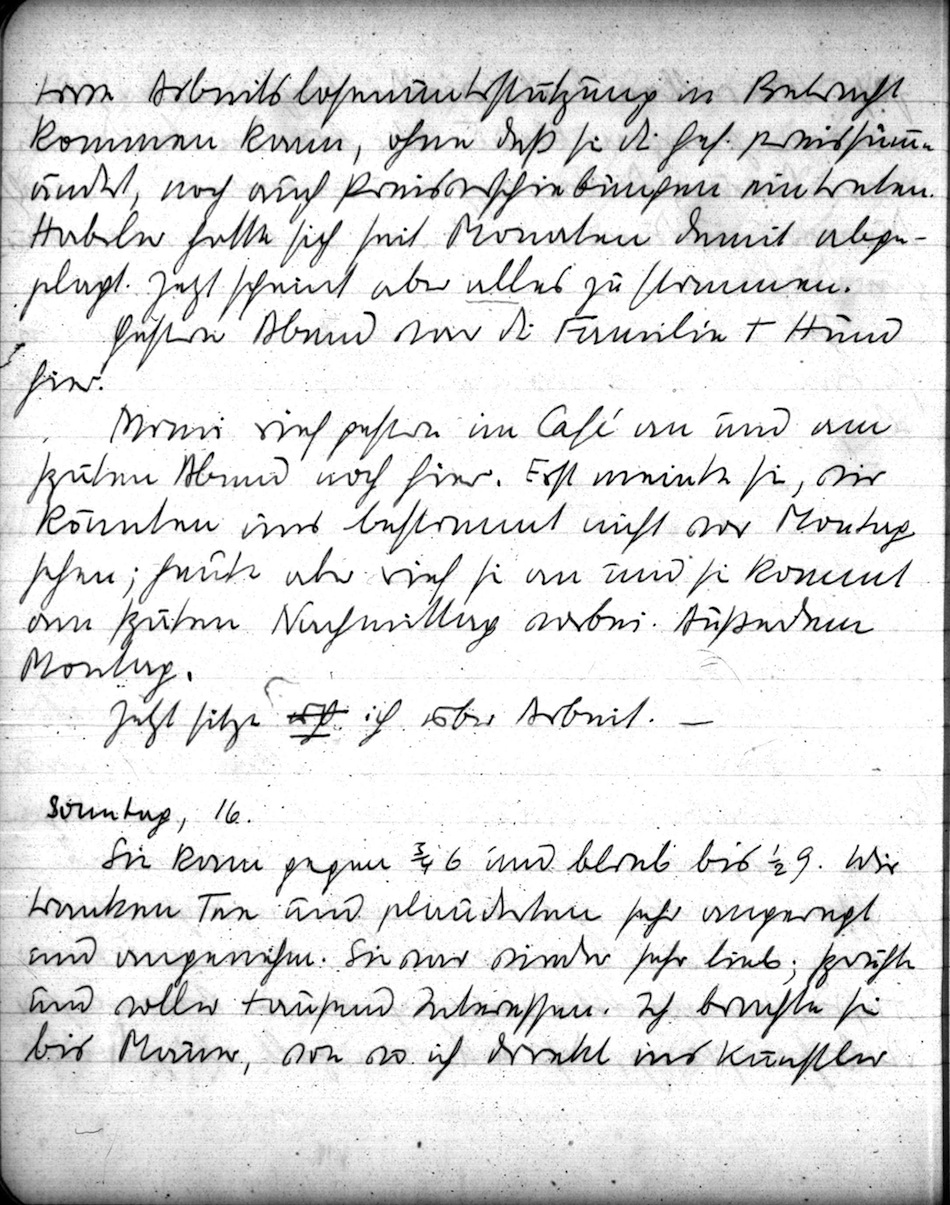 tive Arbeitslosenunterstützung in Betracht
kommen kann, ohne daß sie die Ges. Preissumme
ändert, noch auch Preisverschiebungen eintreten.
Haberler hatte sich seit Monaten damit abge-
plagt. Jetzt scheint aber alles zu stimmen.
Gestern Abend war die Familie + Hund
hier.
rief gestern im Café an und am
späten Abend noch hier. Erst meinte sie, wir
könnten uns bestimmt nicht vor Montag
sehen; heute aber rief sie an und sie kommt
am späten Nachmittag vorbei. Außerdem
Montag.
Jetzt sitze ich über Arbeit. —
Sonntag, 16.
Sie kam gegen ¾ 6 und blieb bis ½ 9. Wir
tranken Tee und plauderten sehr angeregt
und angenehm. Sie war wieder sehr lieb;
und voller tausend Interessen. Ich brachte sie
bis Mauer, von wo ich direkt ins Künstler